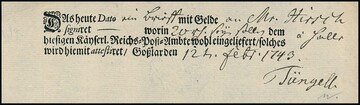 Als heute Dato ein brieff mit Gelde an Mr. Hirsch
signiret worin 20 rh. dem à Halle
hiesigen Käyserl. Reichs-Post-Ambte wohl eingeliefert, solches
wird hiemit attestiret, Goßlar den 12t. Febr. 1743.
Tüngell